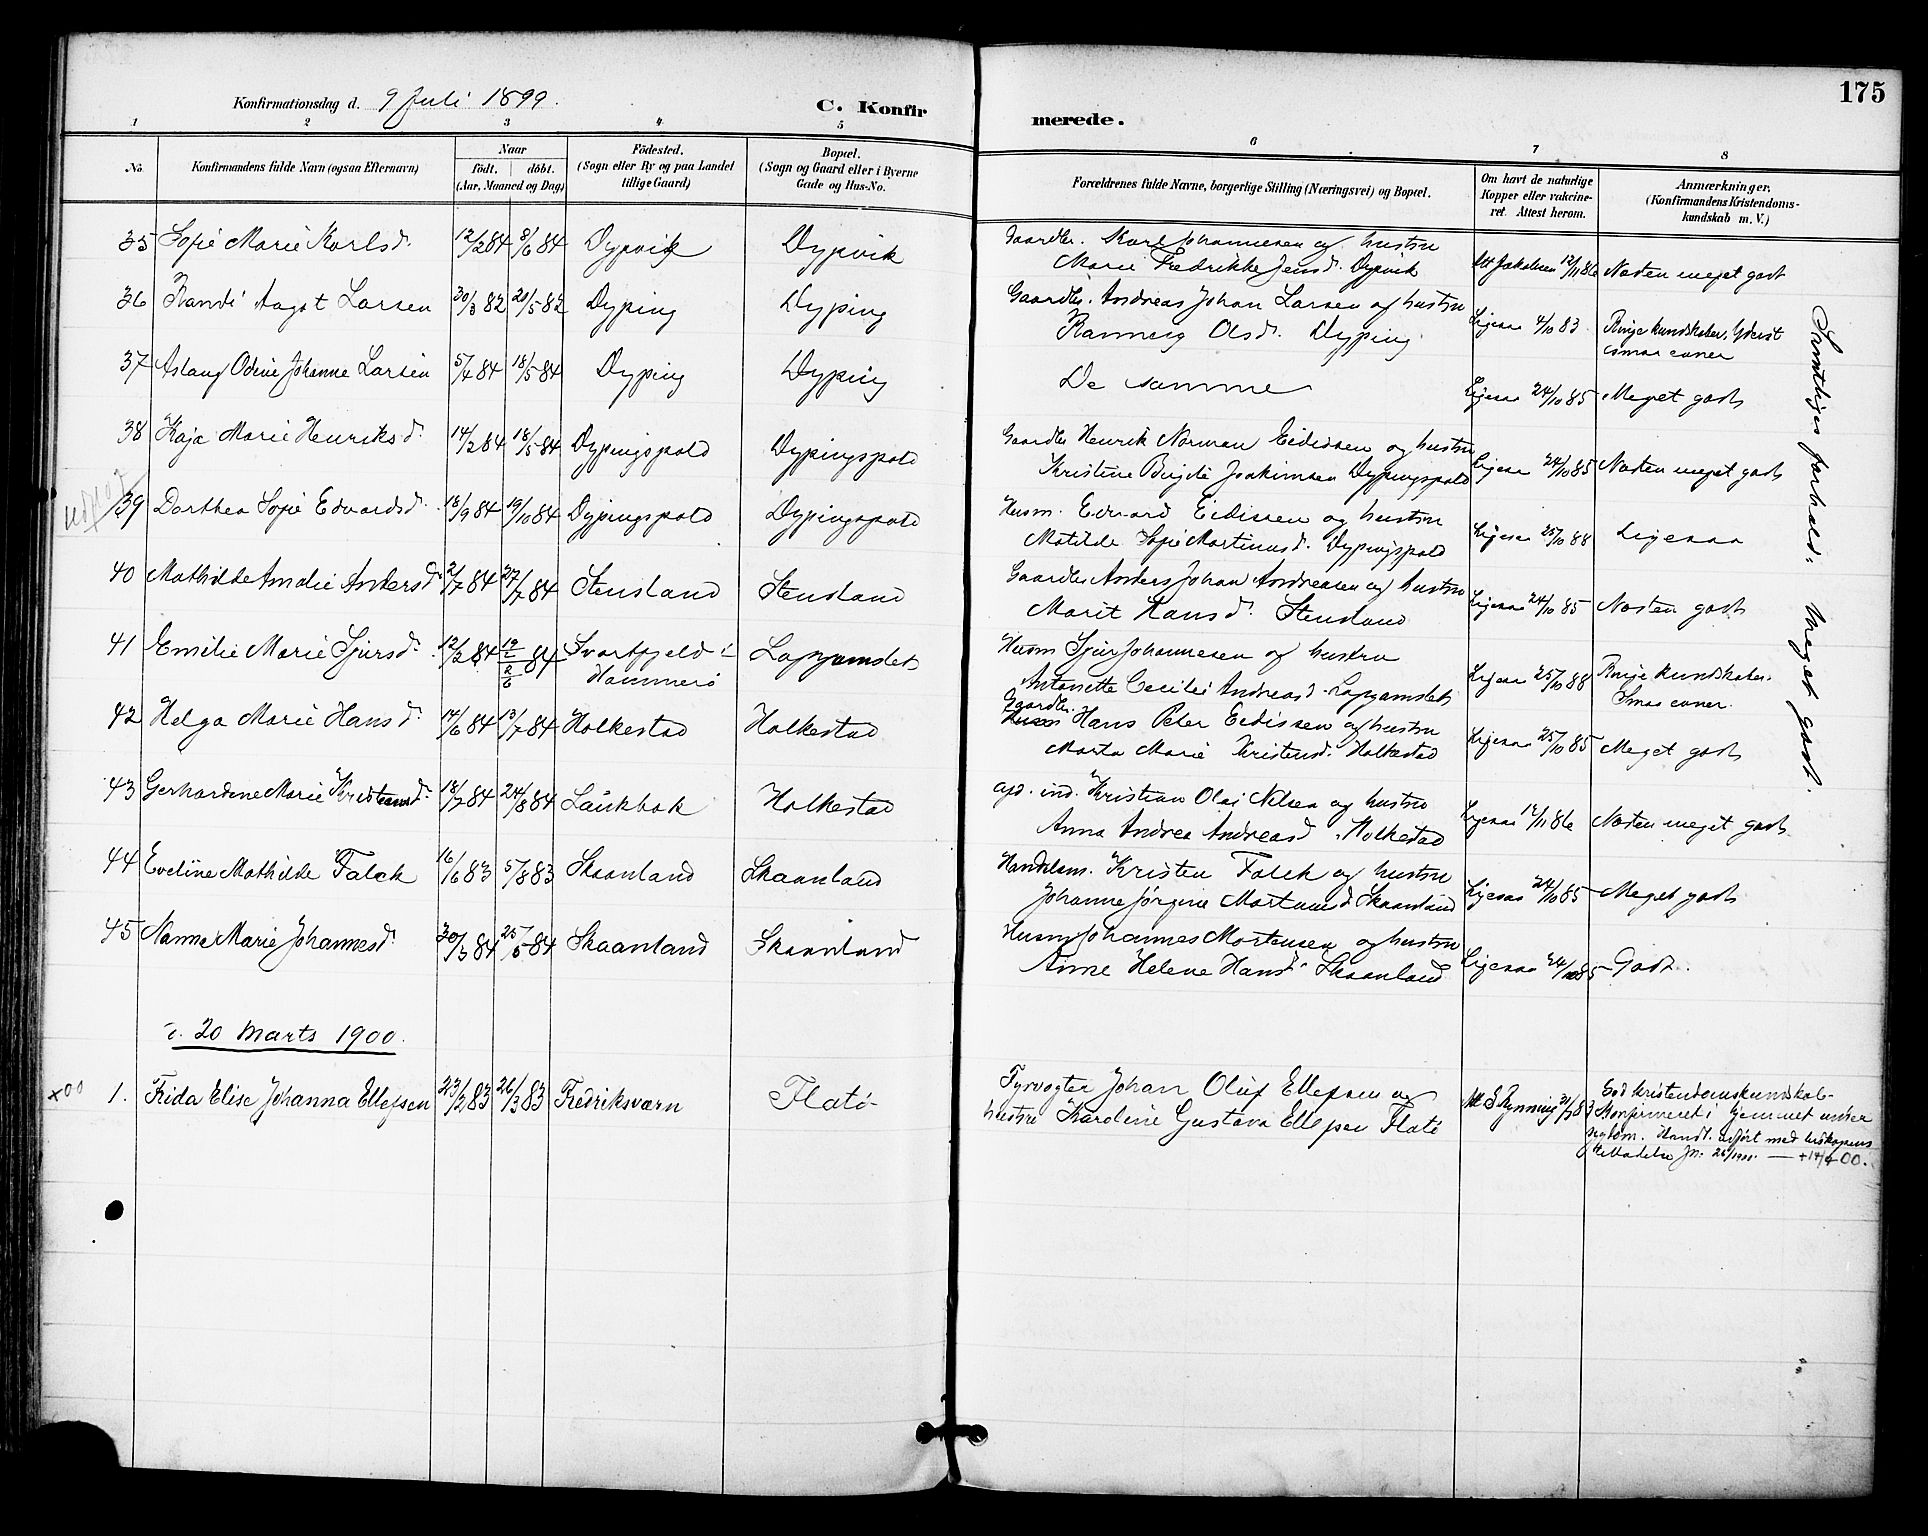 175
Konfirmationsdag d. 9 Juli 1899.
C. Konfirmerede.
1 2 3 4 5 6 7 8
No. Konfirmandens fulde Navn (ogsaa Efternavn) Naar født. døbt. (Aar, Maaned og Dag) Fødested. (Sogn eller By og paa Landet tillige Gaard) Bopæl. (Sogn og Gaard eller i Byerne Gade og Hus-No. Forældrenes fulde Navne, borgerlige Stilling (Næringsvei) og Bopæl. Om havt de naturlige Kopper eller vakcineret. Attest herom. Anmærkninger. (Konfirmandens Kristendomskundskab m. V.)
35 Sofie Marie Karlsd. 12/2 84 8/6 84 Dypvik Dypvik Gaardbr. Karl Johannesen og hustru
Marie Fredrikke Jensd. Dypvik 12/11 86 Næsten meget godt
36 Randi Aagot Larsen 30/3 82 20/5 82 Dyping Dyping Gaardbr. Andreas Johan Larsen og hustru
Ranneig Olsd. Dyping Ligesaa 4/10 83. Ringe kundskaber. Yderst
smaa evner
37 Aslaug Odine Johanne Larsen 5/4 84 18/5 84 Dyping Dyping De samme Ligesaa 24/10 85 Meget godt
38 Kaja Marie Henriksd. 14/2 84 18/5 84 Dypingspold Dypingspold Gaardbr Henrik Norman Eidissen og hustru
Kristine Birgite Joakimsen Dypingspold Ligesaa 24/10 85 Næsten meget godt
39 Dorthea Sofie Edvardsd. 18/9 84 19/10 84 Dypingspold Dypingspold Husm. Edvard Eidissen og hustru
Matilde Sofie Martinusd. Dypingspold Ligesaa 25/10 88 Ligesaa
40 Mathilde Amalie Andersd. 2/7 84 27/7 84 Stensland Stensland Gaardbr Anders Johan Andreasen og hustru
Marit Hansd. Stensland Ligesaa 24/10 85 Næsten godt
41 Emilie Marie Sjursd. 12/2 84 84 Svartfjeld i
Hammerø Husm Sjur Johannesen og hustru
Antonette Cecilie Andreasd. Ligesaa 25/10 88 Ringe kundskaber.
Smaa evner.
42 Helga Marie Hansd. 14/6 84 13/7 84 Holkestad Holkestad Gaardbr. Husm Hans Peter Eidissen og hustru
Marta Marie Kristensd. Holkestad Ligesaa 25/10 85 Meget godt
43 Gerhardine Marie Kristiansd. 18/7 84 24/8 84 Laukbak Holkestad ind. Kristian Olai Nilsen og hustru
Anna Andrea Andreasd. Holkestad Ligesaa 12/11 86 Næsten meget godt.
44 Eveline Mathilde Falck 16/6 83 5/8 83 Skaanland Skaanland Handelsm. Kristen Falck og hustru
Johanne Jørgine Skaanland Ligesaa 24/10 85 Meget godt
45 Nanna Marie Johannesd. 30/3 84 25/5 84 Skaanland Skaanland Husm Johannes Mortensen og hustru
Anne Helene Hansd. Skaanland Ligesaa 24/10 85 Godt.
Samtliges forhold: Meget godt.
d. 20 Marts 1900.
+00 1. Frida Elise Johanna Ellefsen 23/2 83 26/3 83 Fredriksværn Flatø Fyrvogter Johan Oluf Ellefsen og
hustru Karoline Gustava Ellefsen Flatø God Kristendomskundskab.
Konfirmeret i hjemmet under
sygdom. Handl. udført med biskopens
tilladelse